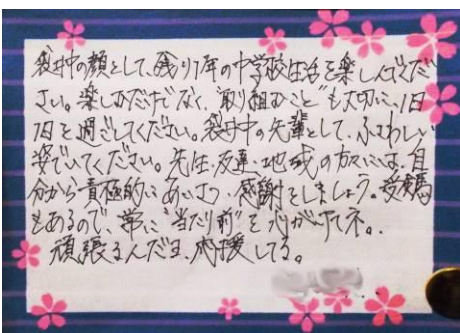 袋井中の顔として、残り1年の中学校生活を楽しんでくだ
さい。楽しむだけでなく、"取り組むこと"も大切に、1日
1日を過ごしてください。袋井中の先輩として、ふさわしい
姿でいてください。先生・友達・地域の方々には、自
分から積極的にあいさつ、感謝をしましょう。受験
もあるので、常に"当たり前"を心がけてネ。
頑張るんだヨ、応援してる。